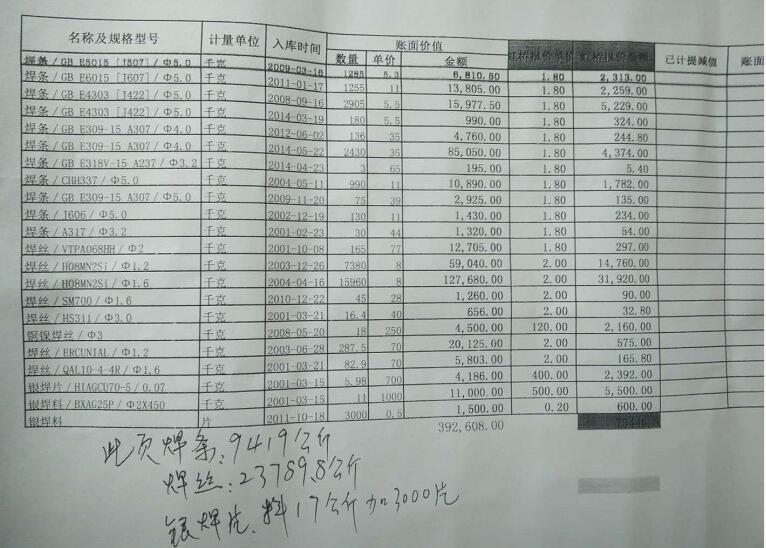 名称及规格型号 计量单位 入库时间 账面价值 虹桥报价单价 虹桥报价金额 已计提减值 账面
数量 单价 金额
焊条/GB E5015 [J507]/Φ5.0 千克 2009-03-16 1285 5.3 6,810.50 1.80 2,313.00
焊条/GB E6015 [J607]/Φ5.0 千克 2011-01-17 1255 11 13,805.00 1.80 2,259.00
焊条/GB E4303 [J422]/Φ5.0 千克 2008-09-16 2905 5.5 15,977.50 1.80 5,229.00
焊条/GB E4303 [J422]/Φ5.0 千克 2014-03-19 180 5.5 990.00 1.80 324.00
焊条/GB E309-15 A307/Φ4.0 千克 2012-06-02 136 35 4,760.00 1.80 244.80
焊条/GB E309-15 A307/Φ4.0 千克 2014-05-22 2430 35 85,050.00 1.80 4,374.00
焊条/GB E318V-15 A237/Φ3.2 千克 2014-04-23 3 65 195.00 1.80 5.40
焊条/CHH337/Φ5.0 千克 2004-05-11 990 11 10,890.00 1.80 1,782.00
焊条/GB E309-15 A307/Φ5.0 千克 2009-11-20 75 39 2,925.00 1.80 135.00
焊条/J606/Φ5.0 千克 2002-12-19 130 11 1,430.00 1.80 234.00
焊条/A317/Φ3.2 千克 2001-02-23 30 44 1,320.00 1.80 54.00
焊丝/VTPA068HH/Φ2 千克 2001-10-08 165 77 12,705.00 1.80 297.00
焊丝/H08MN2Si/Φ1.2 千克 2003-12-26 7380 8 59,040.00 2.00 14,760.00
焊丝/H08MN2Si/Φ1.6 千克 2004-04-16 15960 8 127,680.00 2.00 31,920.00
焊丝/SM700/Φ1.6 千克 2010-12-22 45 28 1,260.00 2.00 90.00
焊丝/HS311/Φ3.0 千克 2001-03-21 16.4 40 656.00 2.00 32.80
铜镍焊丝/Φ3 千克 2008-05-20 18 250 4,500.00 120.00 2,160.00
焊丝/ERCUNIAL/Φ1.2 千克 2003-06-28 287.5 70 20,125.00 2.00 575.00
焊丝/QAL10-4-4R/Φ1.6 千克 2001-03-21 82.9 70 5,803.00 2.00 165.80
银焊片/HIAGCU70-5/0.07 千克 2001-03-15 5.98 700 4,186.00 400.00 2,392.00
银焊料/BXAG25P/Φ2X450 千克 2001-03-15 11 1000 11,000.00 500.00 5,500.00
银焊料 片 2011-10-18 3000 0.5 1,500.00 0.20 600.00
392,608.00
此页焊条:9419公斤
焊丝:23789.8公斤
银焊片、料17公斤加3000片